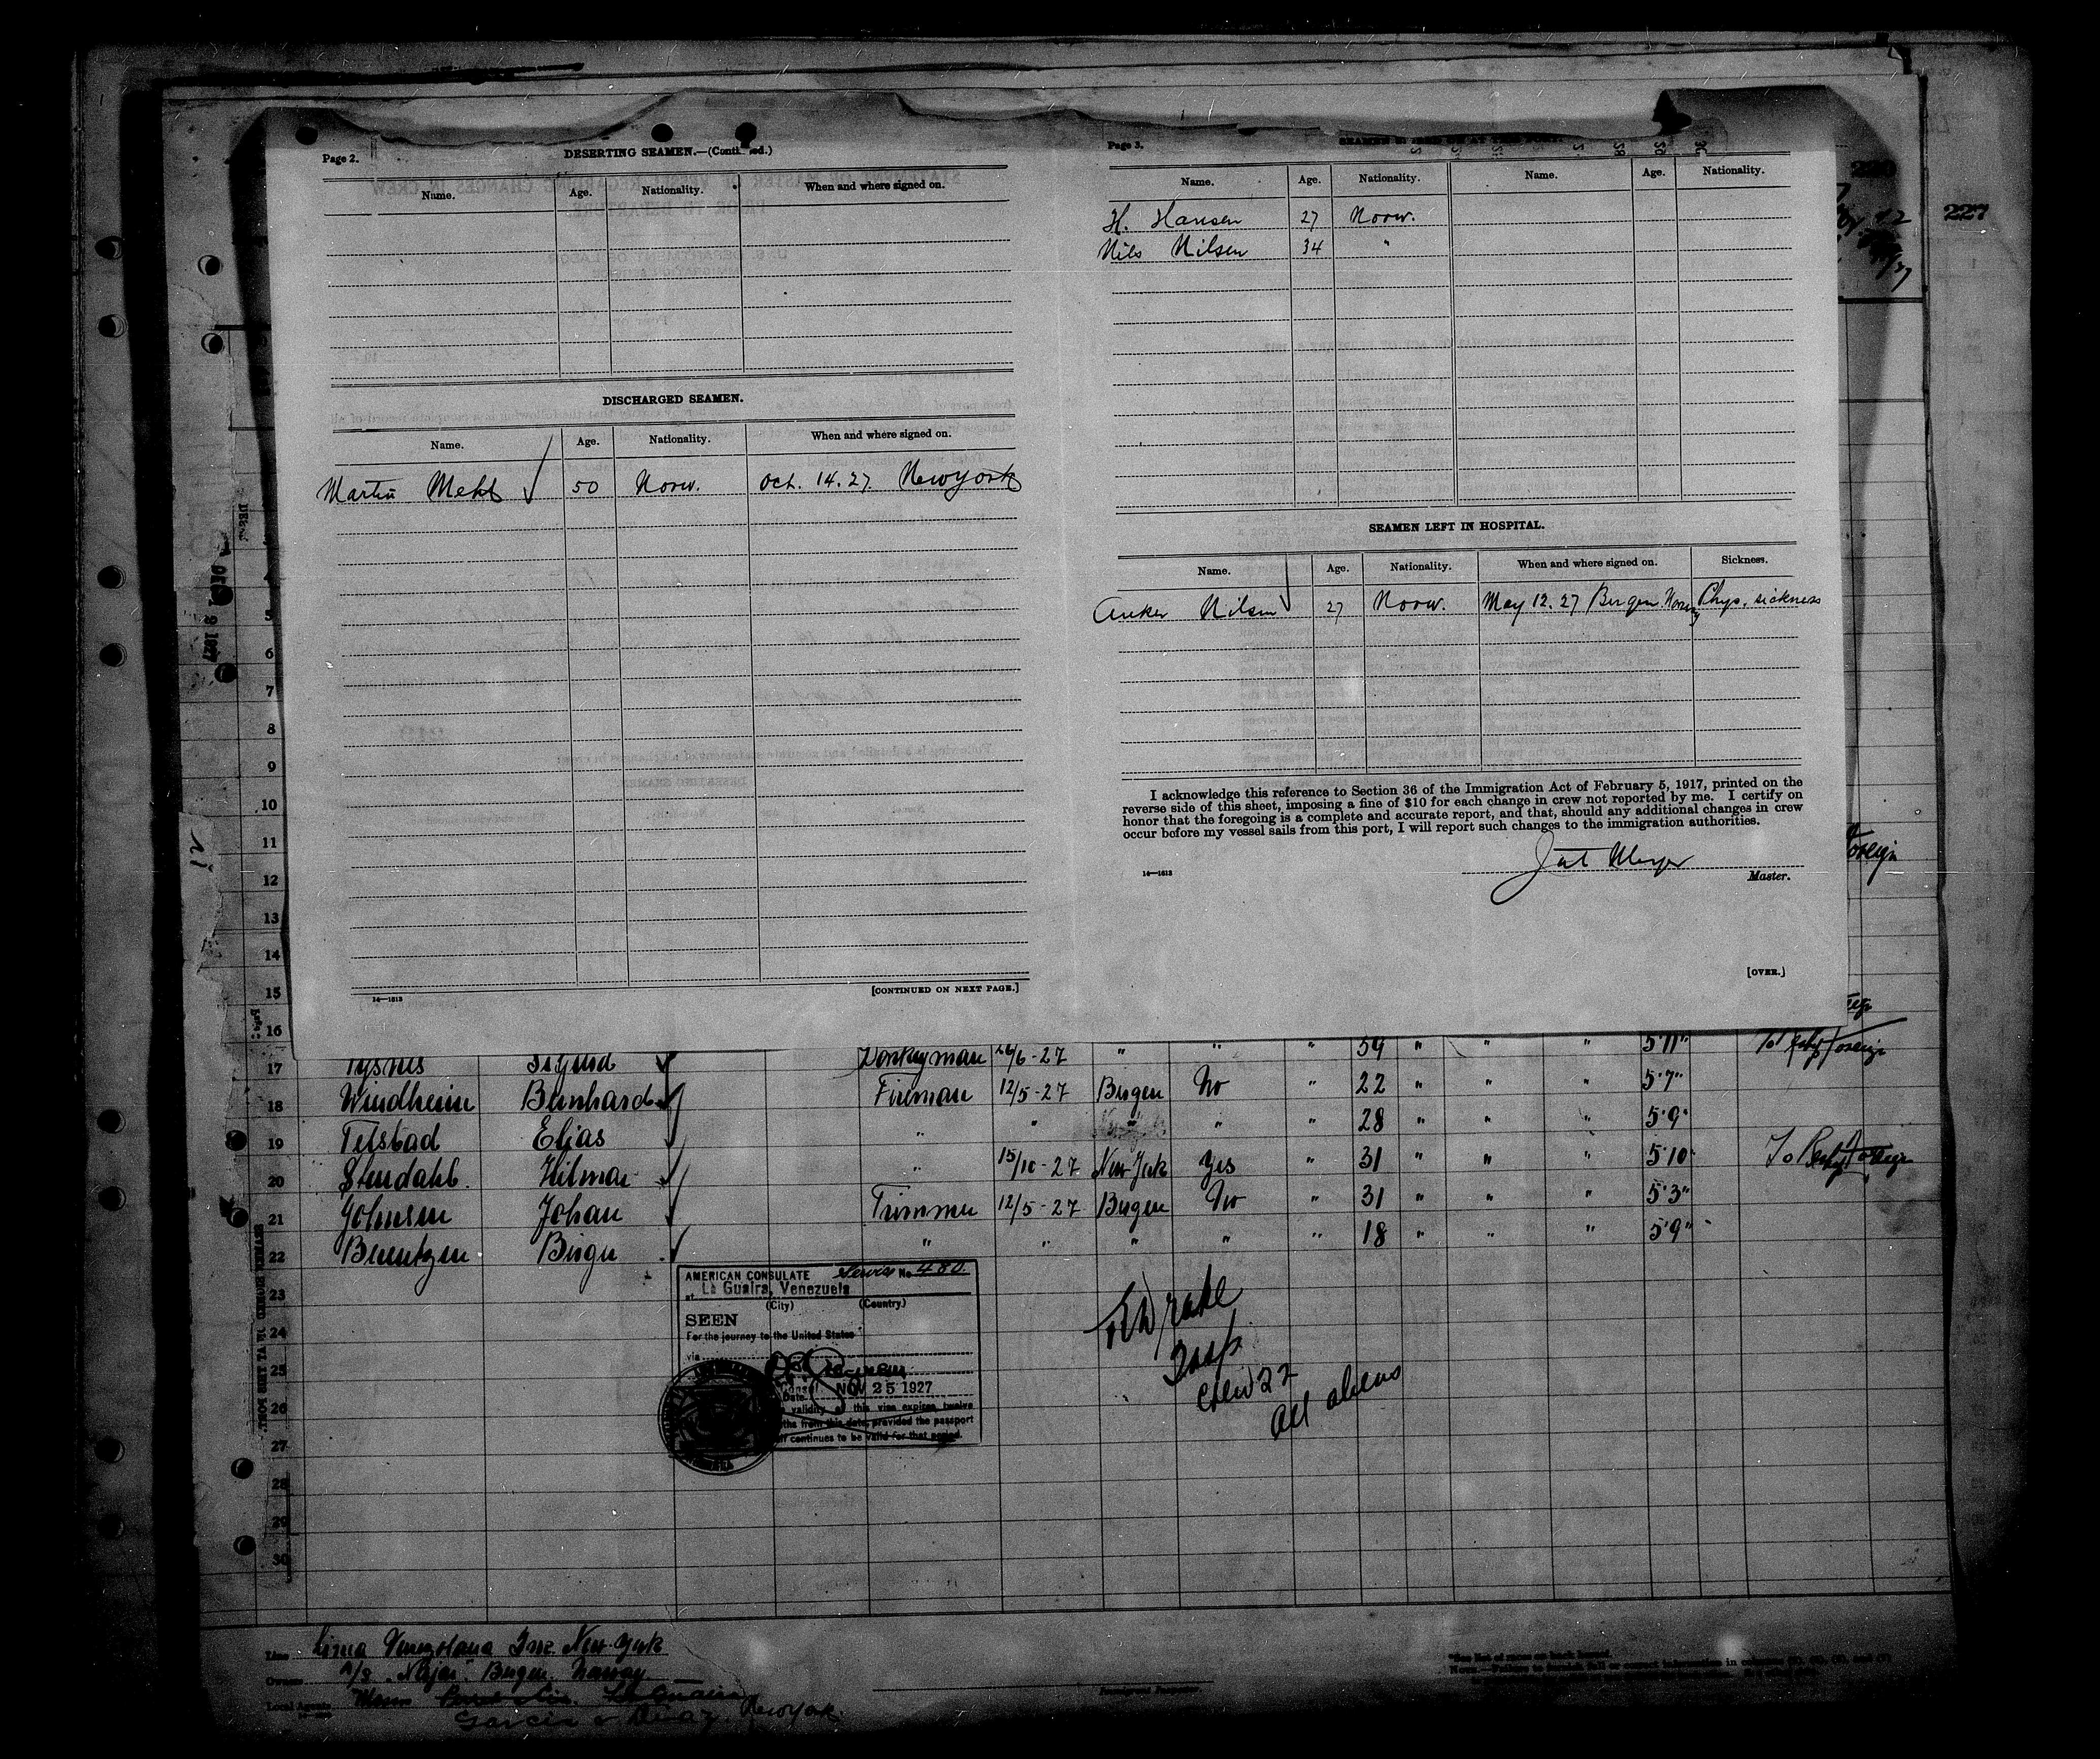 Page 2.
DESERTING SEAMEN.—(Conti ed.)
Name. Age. Nationality. When and where signed on.
DISCHARGED SEAMEN.
Name. Age. Nationality. When and where signed on.
Martin Mehl 50 Norw. Oct. 14. 27. New York
14—1313
[CONTINUED ON NEXT PAGE.]
Page 3.
Name. Age. Nationality. Name. Age. Nationality.
H. Hansen 27 Norw.
Nils Nilsen 34 "
SEAMEN LEFT IN HOSPITAL.
Name. Age. Nationality. When and where signed on. Sickness.
Anker Nilsen 27 Norw. May 12. 27 Bergen. Phys. sickness
I acknowledge this reference to Section 36 of the Immigration Act of February 5, 1917, printed on the
reverse side of this sheet, imposing a fine of $10 for each change in crew not reported by me. I certify on
honor that the foregoing is a complete and accurate report, and that, should any additional changes in crew
occur before my vessel sails from this port, I will report such changes to the immigration authorities.
14—1313
Master.
[OVER.]
227
5
6
7
8
9
10
11
12
13
14
15
16
17 Sigurd Donkeyman /6-27 " " " " " " 5'11"
18 Windheim Bernhard Fireman 12/5-27 Bergen No " 22 " " " 5'7"
19 Telstad Elias " " " " " 28 " " " 5'9"
20 Stendahl. Hilmar " 15/10-27 New York Yes " 31 " " " 5'10"
21 Johnsen Johan Trimmer 12/5-27 Bergen No " 31 " " " 5'3"
22 Berentzen Birger " " " " " 18 " " " 5'9"
23
24
25
26
27
28
29
30
AMERICAN CONSULATE Service No. 480.
at La Guaira, Venezuela
(City) (Country)
SEEN
For the journey to the United States
via
Date NOV 25 1927
validity of this visa expires twelve
ths from this date, provided the passport
continues to be valid for that period.
Drake
crew 22
all aliens
Line Linea Venezolana Inc. New York
Owners A/S Bergen. Norway
Local Agents
Garcia & Diaz. New York.